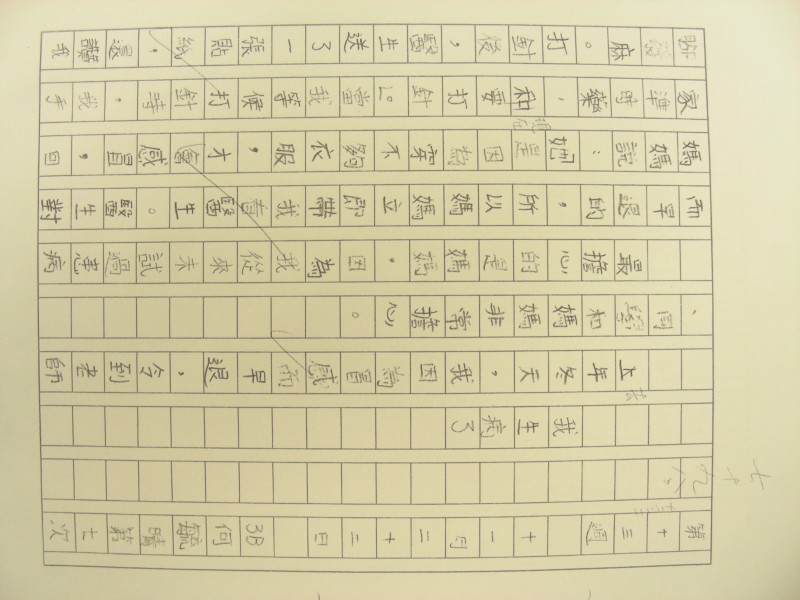 第十三週 十一月二十二日 3B 何毓晴 第七次
我生病了
上年冬天，我因為冒感而早退，令到老師
、同學和媽媽非常擔心。
最擔心的是媽媽，因為我從來未試過患病
而早退的，所以媽媽立即帶我看醫生。醫生對
媽媽說：她是因為穿不夠衣服，才會感冒，回
家準時藥，和要打針」。當我等候打針時，我手
腳發麻。打針後，醫生送了一張貼紙，還讚我
去
七十九